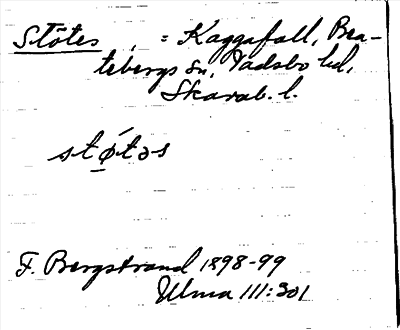 Stötes, = Kaggafall, Bea-
tebergs sn, Vadsbo hd,
Skarab. l.
stǿ̱təs
F. Bergstrand 1898-99
Ulma 111:301